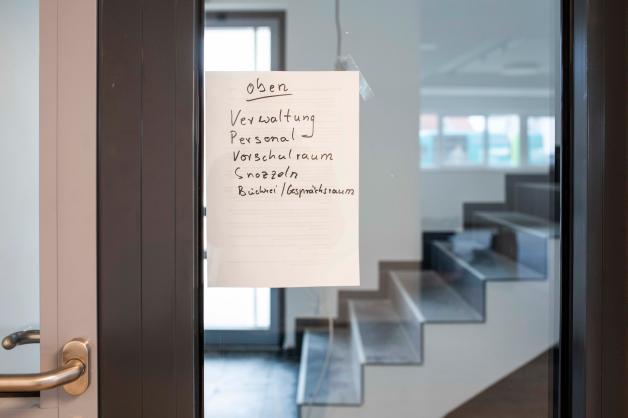 Oben
Verwaltung
Personal
Vorschulraum
Snozzeln
Bücherei/Gesprächsraum